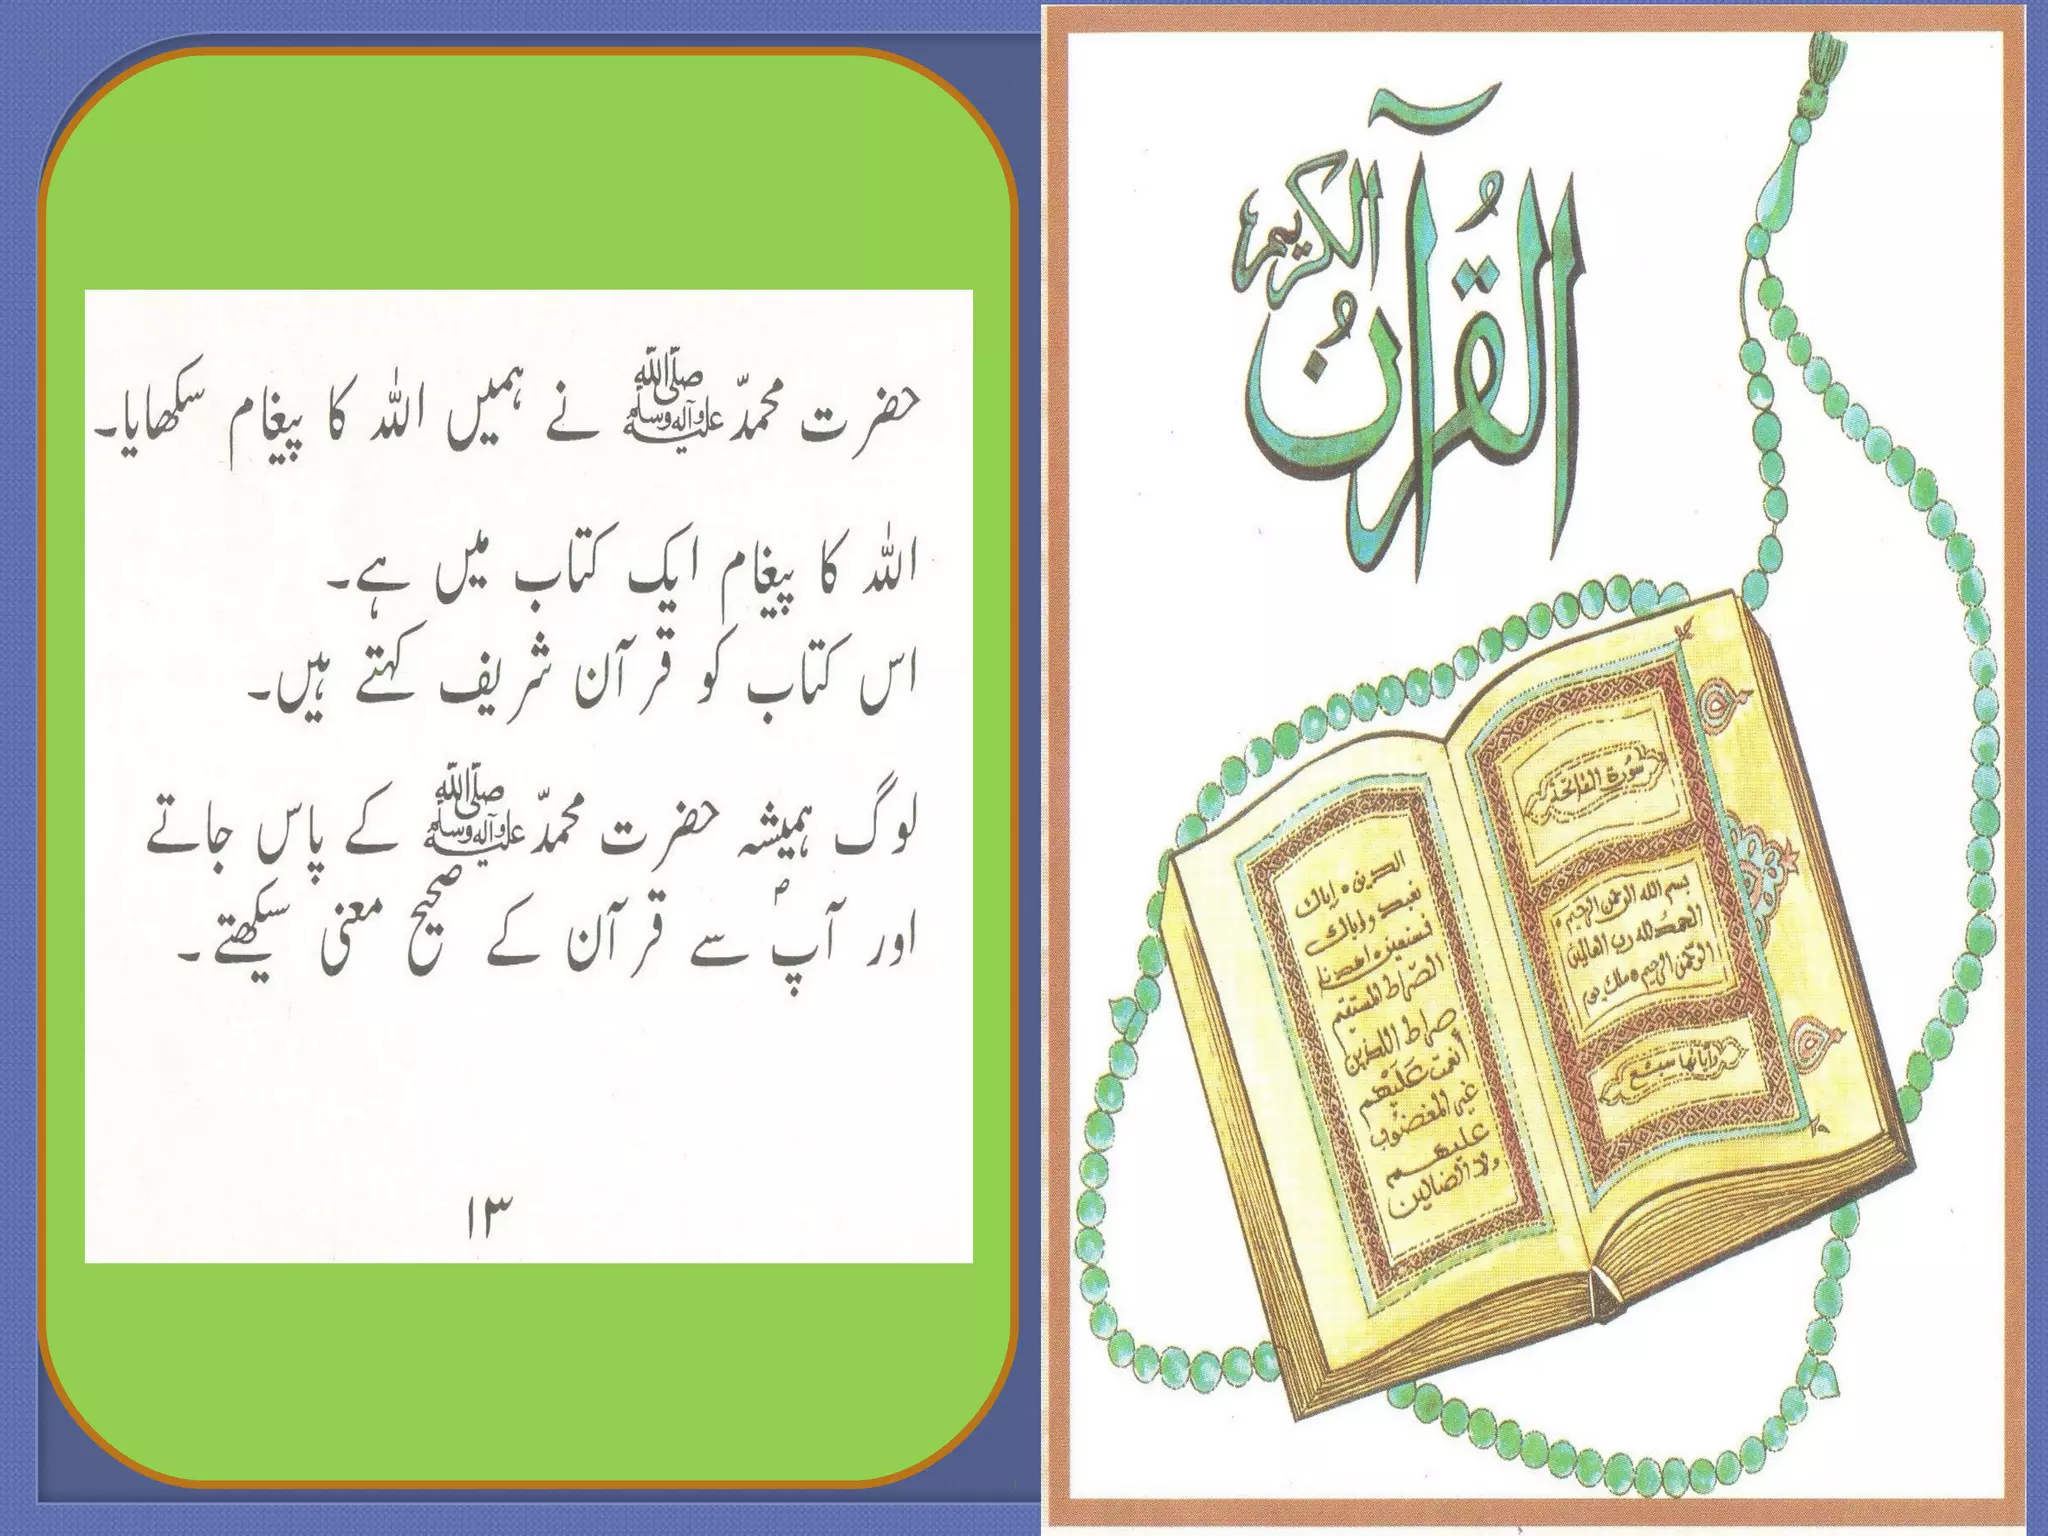 حضرت محمدؐ صلی اللہ علیہ وآلہ وسلم نے ہمیں اللہ کا پیغام سکھایا۔
اللہ کا پیغام ایک کتاب میں ہے۔
اس کتاب کو قرآن شریف کہتے ہیں۔
لوگ ہمیشہ حضرت محمدؐ صلی اللہ علیہ وآلہ وسلم کے پاس جاتے
اور آپؐ سے قرآن کے صحیح معنی سیکھتے۔
۱۳
القرآنُ الكريم
سورة الفاتحة
بسم الله الرحمن الرحيم
الحمد لله رب العالمين
الرحمن الرحيم ملك يوم
وآياتها سبع
الدين اياك
نعبد واياك
نستعين اهدنا
الصراط المستقيم
صراط الذين
أنعمت عليهم
غير المغضوب
عليهم
ولا الضالين